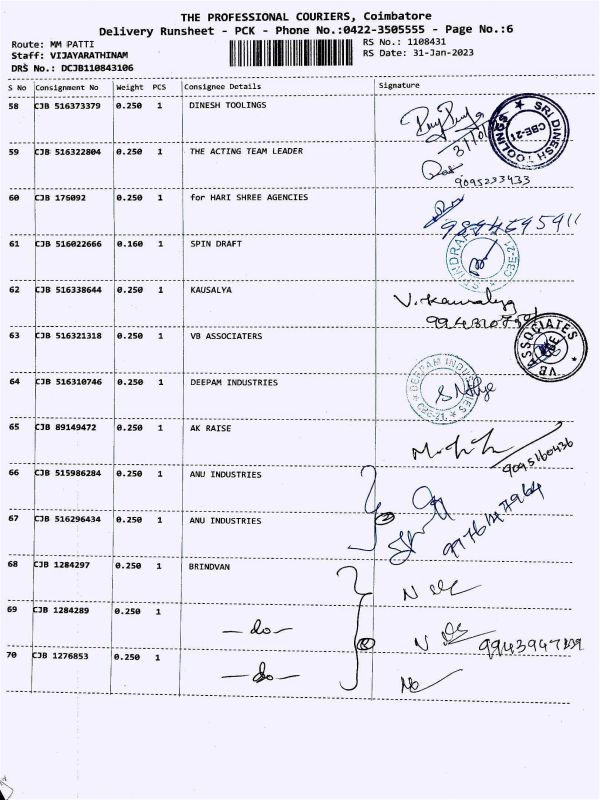 THE PROFESSIONAL COURIERS, Coimbatore
Delivery Runsheet - PCK - Phone No.:0422-3505555 - Page No.:6
Route: MM PATTI
RS No.: 1108431
Staff: VIJAYARATHINAM
RS Date: 31-Jan-2023
DRS No.: DCJB110843106
S No Consignment No Weight PCS Consignee Details Signature
58 CJB 516373379 0.250 1 DINESH TOOLINGS
SRI DINESH TOOLINGS ★ CBE-21
59 CJB 516322804 0.250 1 THE ACTING TEAM LEADER
9095233433
60 CJB 176092 0.250 1 for HARI SHREE AGENCIES
61 CJB 516022666 0.160 1 SPIN DRAFT
CBE-21
62 CJB 516338644 0.250 1 KAUSALYA V. Kausalya
63 CJB 516321318 0.250 1 VB ASSOCIATERS
VB ASSOCIATES
64 CJB 516310746 0.250 1 DEEPAM INDUSTRIES
DEEPAM INDUSTRIES ★ CBE-21 ★
65 CJB 89149472 0.250 1 AK RAISE
9095160436
66 CJB 515986284 0.250 1 ANU INDUSTRIES
67 CJB 516296434 0.250 1 ANU INDUSTRIES
68 CJB 1284297 0.250 1 BRINDVAN
69 CJB 1284289 0.250 1 —do—
70 CJB 1276853 0.250 1 —do—